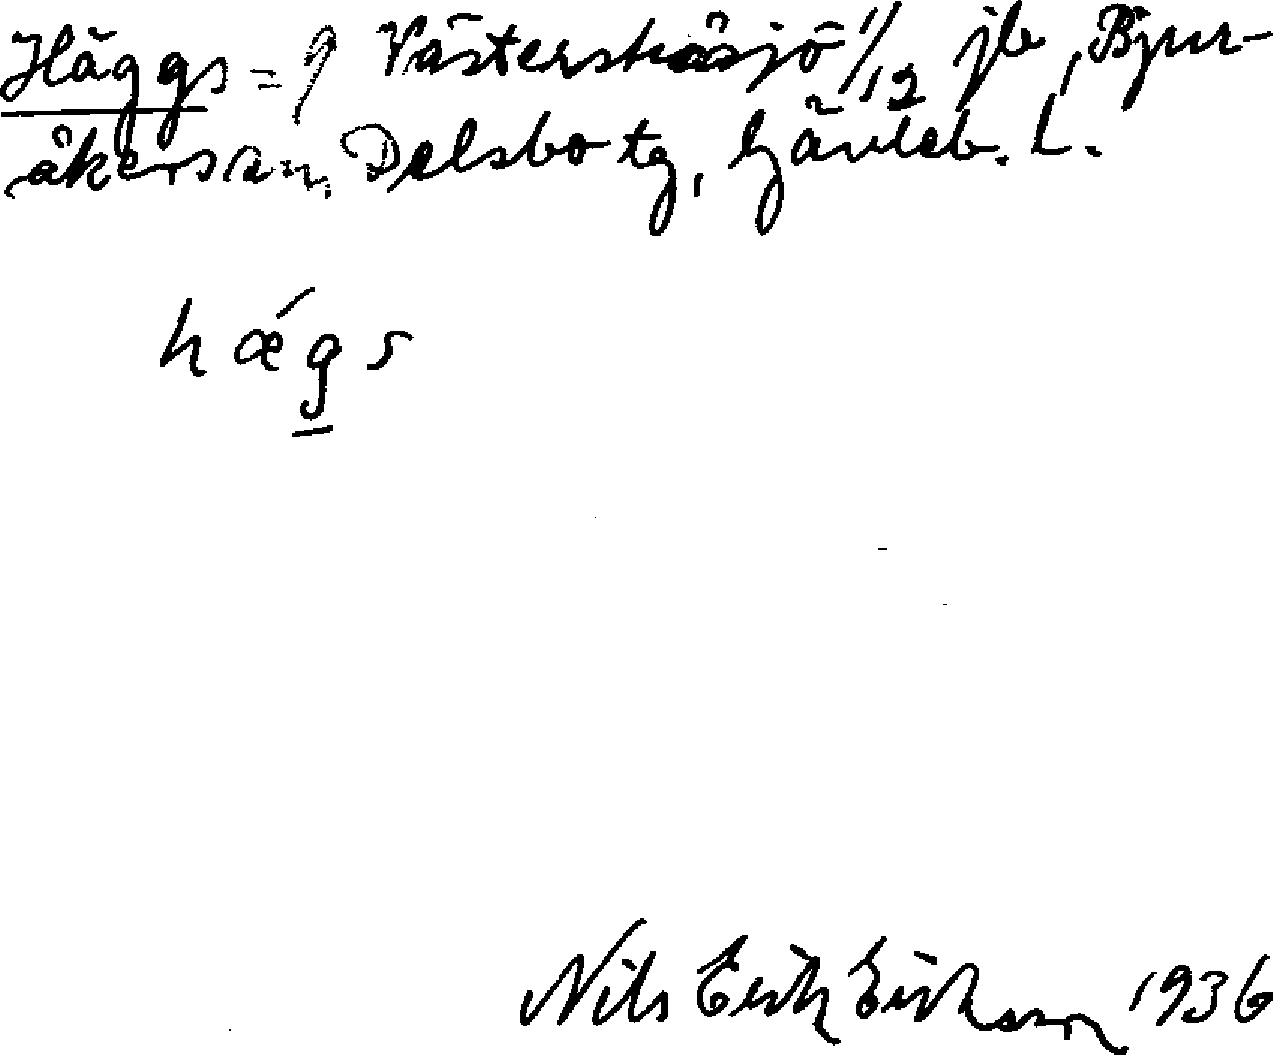 Häggs = 9 Västerstråsjö 1/12 jb, Bjur-
åkers sn, Delsbo tg, Gävleb. L.
hǽgs
Nils Erik Eriksson 1936